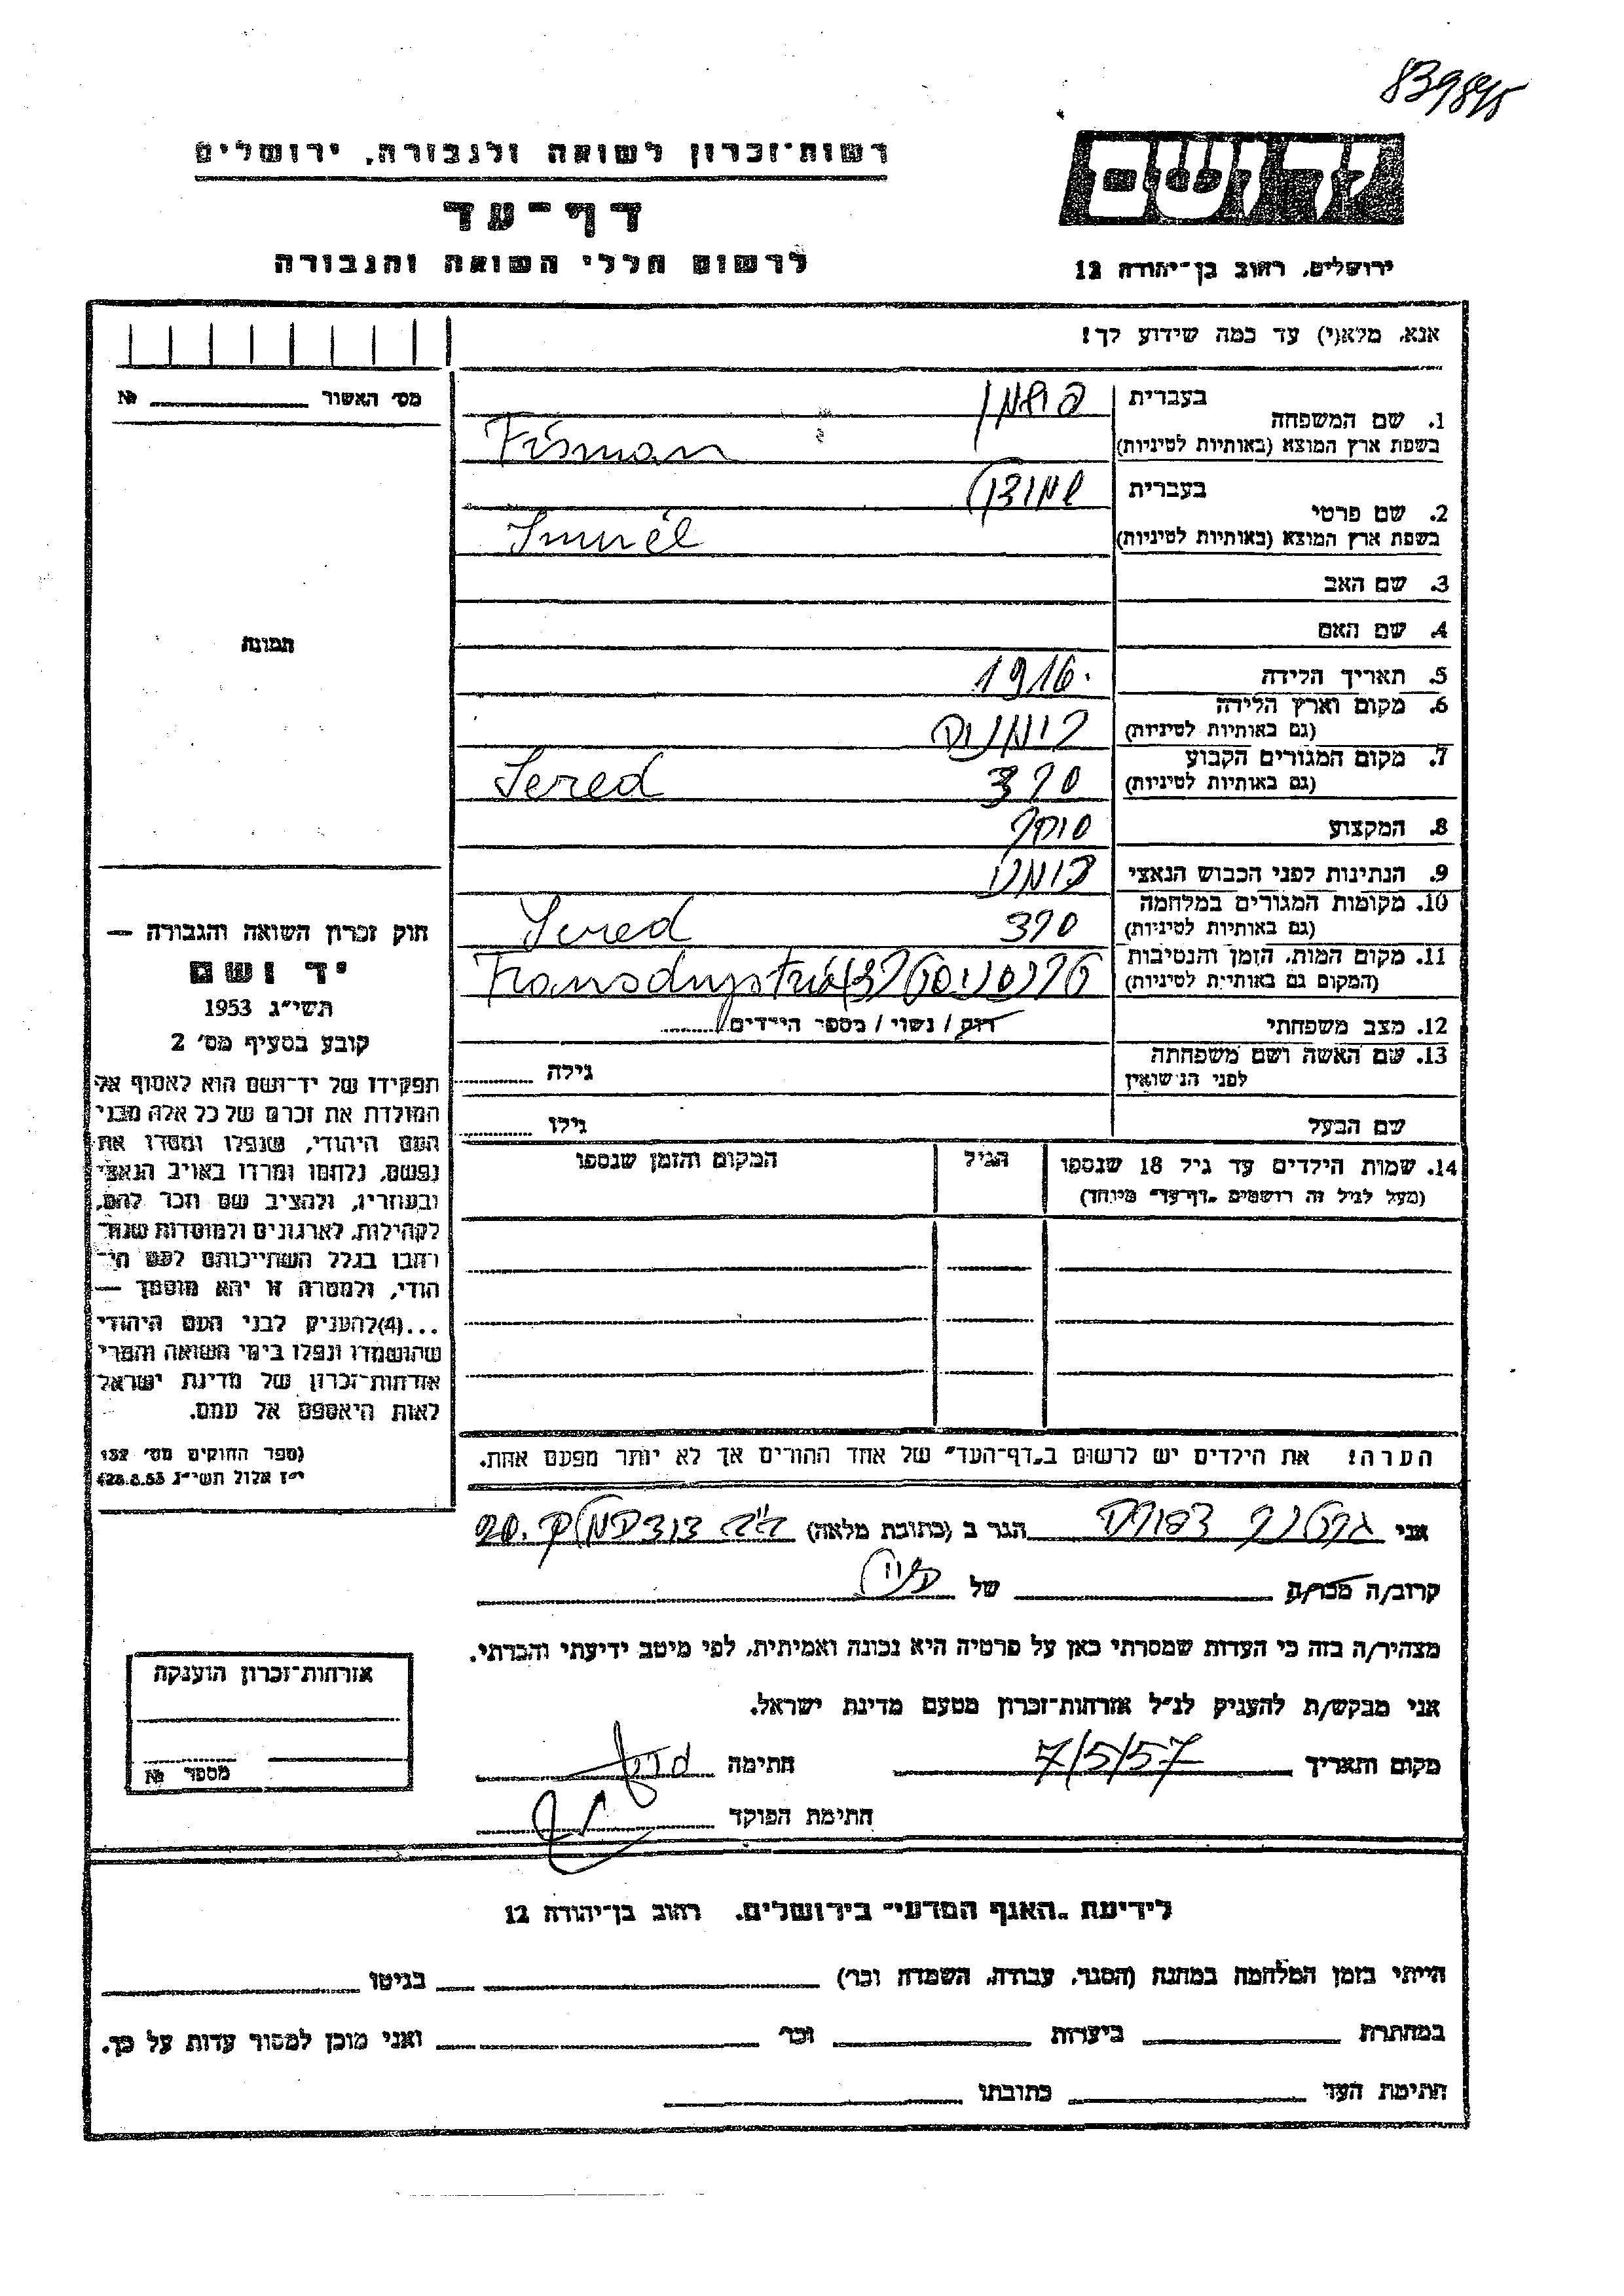 839895
רשות־זכרון לשואה ולגבורה, ירושלים
דף־עד
לרשום חללי השואה והגבורה
ידושם
ירושלים, רחוב בן־יהודה 12
אנא, מלא(י) עד כמה שידוע לך!
מס׳ האשור № 
תמונה
1. שם המשפחה
בעברית פישמן
בשפת ארץ המוצא (באותיות לטיניות) Fisman
2. שם פרטי
בעברית שמואל
בשפת ארץ המוצא (באותיות לטיניות) Smuél
3. שם האב
4. שם האם
5. תאריך הלידה 1916.
6. מקום וארץ הלידה
(גם באותיות לטיניות) רומניה
7. מקום המגורים הקבוע
(גם באותיות לטיניות) סרד Sered
8. המקצוע סוחר
9. הנתינות לפני הכבוש הנאצי רומני
10. מקומות המגורים במלחמה
(גם באותיות לטיניות) סרד Sered
11. מקום המות, הזמן והנסיבות
(המקום גם באותיות לטיניות) טרנסניסטריה Transdnystria
12. מצב משפחתי רווק / נשוי / מספר הילדים
13. שם האשה ושם משפחתה
לפני הנישואין גילה
שם הבעל גילו
14. שמות הילדים עד גיל 18 שנספו הגיל המקום והזמן שנספו
(מעל לגיל זה רושמים „דף־עד״ מיוחד)
הערה! את הילדים יש לרשום ב„דף־העד״ של אחד ההורים אך לא יותר מפעם אחת.
חוק זכרון השואה והגבורה —
יד ושם
תשי״ג 1953
קובע בסעיף מס׳ 2
תפקידו של יד־ושם הוא לאסוף אל
המולדת את זכרם של כל אלה מבני
העם היהודי, שנפלו ומסרו את
נפשם, נלחמו ומרדו באויב הנאצי
ובעוזריו, ולהציב שם וזכר להם,
לקהילות, לארגונים ולמוסדות שנח־
רבו בגלל השתייכותם לעם הי־
הודי, ולמטרה זו יהא מוסמך —
...(4)להעניק לבני העם היהודי
שהושמדו ונפלו בימי השואה והמרי
אזרחות־זכרון של מדינת ישראל
לאות היאספם אל עמם.
(ספר החוקים מס׳ 132
י״ז אלול תשי״ג 28.8.53)
אני צפורה הגר ב (כתובת מלאה) 20.
קרוב/ה מכר/ה של
מצהיר/ה בזה כי העדות שמסרתי כאן על פרטיה היא נכונה ואמיתית, לפי מיטב ידיעתי והכרתי.
אני מבקש/ת להעניק לנ״ל אזרחות־זכרון מטעם מדינת ישראל.
מקום ותאריך 7/5/57 חתימה
חתימת הפוקד
אזרחות־זכרון הוענקה
מספר №
לידיעת „האגף המדעי״ בירושלים, רחוב בן־יהודה 12
הייתי בזמן המלחמה במחנה (הסגר, עבודה, השמדה וכו׳) בגיטו
במחתרת ביערות וכו׳ ואני מוכן למסור עדות על כך.
חתימת העד כתובתו